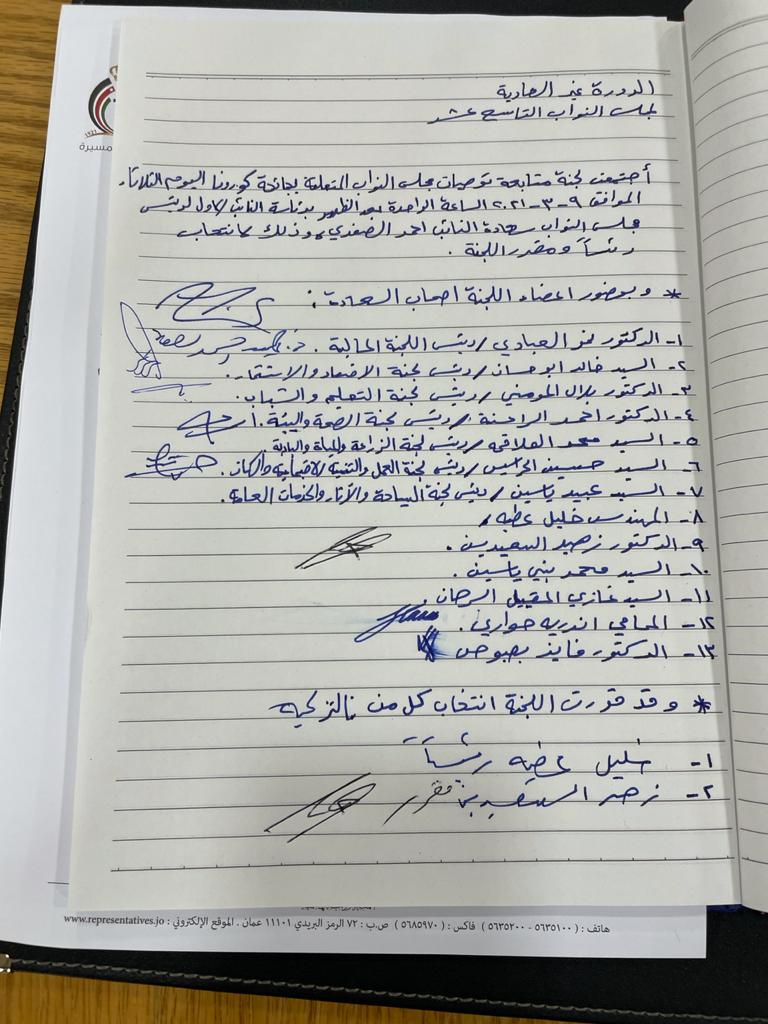 مسيرة
الدورة غير العادية
لمجلس النواب التاسع عشر
أجتمعت لجنة متابعة توصيات مجلس النواب المتعلقة بجائحة كورونا اليوم الثلاثاء
الموافق ٩-٣-٢٠٢١ الساعة الواحدة بعد الظهر برئاسة النائب الاول لرئيس
مجلس النواب سعادة النائب احمد الصفدي، وذلك لانتخاب
رئيساً ومقرر اللجنة.
* وبحضور اعضاء اللجنة اصحاب السعادة:
١- الدكتور نمر العبادي/رئيس اللجنة المالية.
٢- السيد خالد ابو حسان/رئيس لجنة الاقتصاد والاستثمار.
٣- الدكتور بلال المومني/رئيس لجنة التعليم والشباب.
٤- الدكتور احمد السراحنة/رئيس لجنة الصحة والبيئة.
٥- السيد محمد العلاقمه/رئيس لجنة الزراعة والمياة والبادية.
٦- السيد حسين الحراسيس/رئيس لجنة العمل والتنمية الاجتماعية والسكان.
٧- السيد عبيد ياسين/رئيس لجنة السياحة والآثار والخدمات العامة.
٨- المهندس خليل عطيه
٩- الدكتور نصير السعيديين.
١٠- السيد محمد بني ياسين.
١١- السيد غازي السرحان.
١٢- المحامي اندريه حواري.
١٣- الدكتور فايز بصبوص
* وقد قررت اللجنة انتخاب كل من بالتزكيه
١- خليل عطيه رئيساً
٢- مقرر
هاتف : (٥٦٣٥١٠٠ - ٥٦٣٥٢٠٠) فاكس : (٥٦٨٥٩٧٠) ص.ب : ٧٢ الرمز البريدي ١١١٠١ عمان . الموقع الإلكتروني : www.representatives.jo